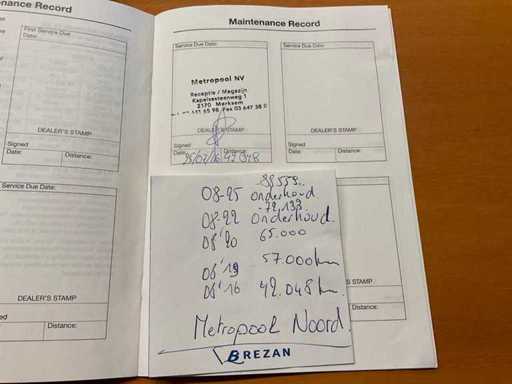 nance Record
Maintenance Record
First Service Due
Date:
Service Due Date:
Service Due Date:
Metropool NV
Receptie / Magazijn
Kapelsesteenweg 1
2170 Merksem
Fax 03 647 38
DEALER'S STAMP
DEALER'S STAMP
DEALER'S STAMP
Signed
Date:
Distance:
Signed
Date:
Distance:
Signed
Date:
Distance:
Service Due Date:
DEALER'S STAMP
Signed
Date:
Distance:
Distance:
88559
08-25 onderhoud
72.133
08-22 onderhoud
08'20 65.000
06'19 57.000km
08'16 42.048km.
Metropool Noord.
BREZAN